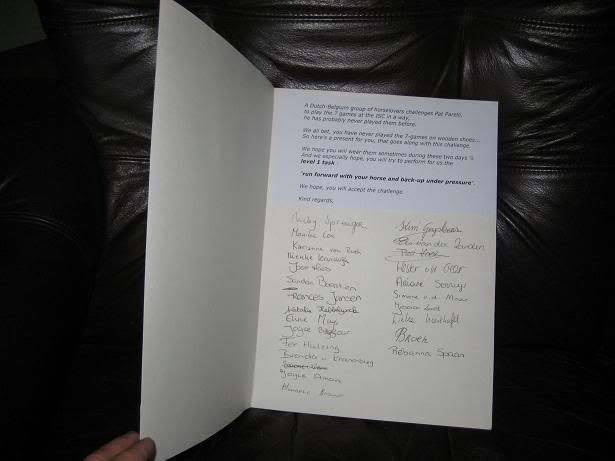 A Dutch-Belgium group of horselovers challenges Pat Parelli,
to play the 7 games at the ISC in a way,
he has probably never played them before.
We all bet, you have never played the 7-games on wooden shoes...
So here's a present for you, that goes along with this challenge.
We hope you will wear them sometimes during these two days
And we especially hope, you will try to perform for us the
level 1 task :
"run forward with your horse and back-up under pressure".
We hope, you will accept the challenge
Kind regards,
Nicky Sprenger
Marika Cox
Karianne van
Nienke
Sandra
Frances Jansen
Eline Muys
Joyce
Fer Hulzing
Brenda v. Kranenburg
Joyce Aman
Kim
van der Zanden
Ester van
Ariane
Simone v.d.
Lielke
Broek
Rebanna Spaan